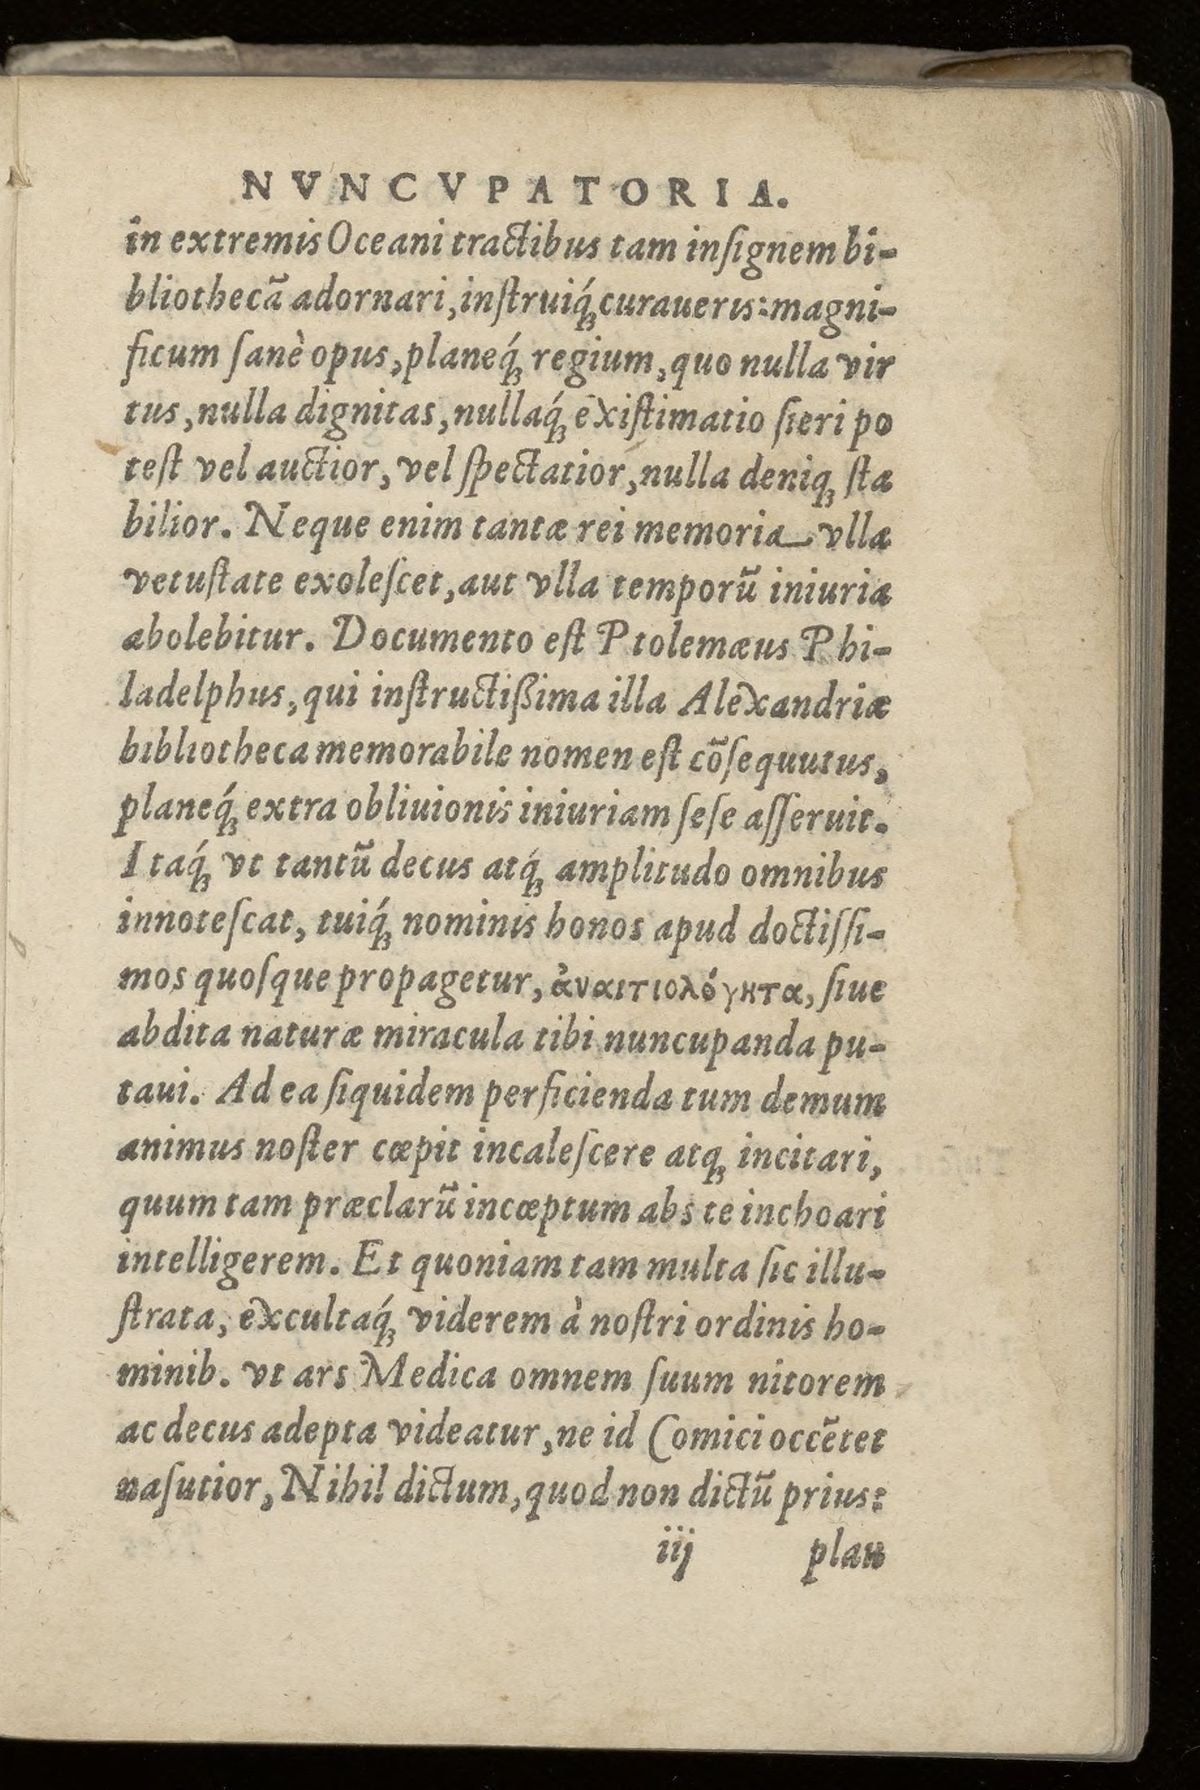 NVNCVPATORIA.
in extremis Oceani tractibus tam insignem bi-
bliothecã adornari, instruiq́; curaueris: magni-
ficum sanè opus, planeq́; regium, quo nulla vir
tus, nulla dignitas, nullaq́; existimatio fieri po
test vel auctior, vel spectatior, nulla deniq; sta
bilior. Neque enim tantæ rei memoria vlla
vetustate exolescet, aut vlla temporũ iniuria
abolebitur. Documento est Ptolemæus Phi-
ladelphus, qui instructißima illa Alexandriæ
bibliotheca memorabile nomen est cõsequutus,
planeq́; extra obliuionis iniuriam sese asseruit.
Itaq́; vt tantũ decus atq́; amplitudo omnibus
innotescat, tuiq́; nominis honos apud doctissi-
mos quosque propagetur, ἀναιτιολόγητα, siue
abdita naturæ miracula tibi nuncupanda pu-
taui. Ad ea siquidem perficienda tum demum
animus noster cœpit incalescere atq; incitari,
quum tam præclarũ incœptum abs te inchoari
intelligerem. Et quoniam tam multa sic illu-
strata, excultaq́; viderem à nostri ordinis ho-
minib. vt ars Medica omnem suum nitorem
ac decus adepta videatur, ne id Comici occẽtet
nasutior, Nihil dictum, quod non dictũ prius:
iij plan